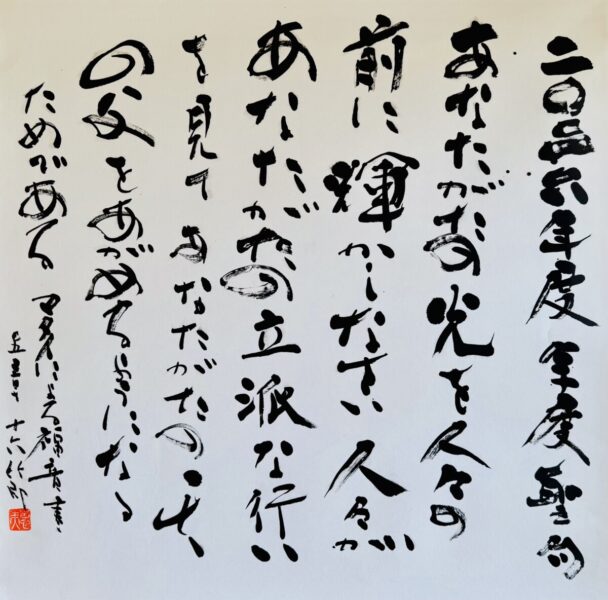 二〇二六年度 年度聖句
あなたがたの光を人々の
前に輝かしなさい 人々が
あなたがたの立派な行い
を見て あなたがたの天
の父をあがめるようになる
ためである マタイによる福音書
五章 十六節